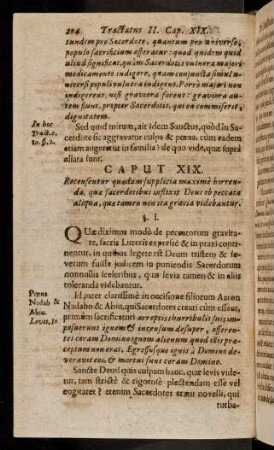 204 Tractatus II. Cap. XIX.
tundem pro Sacerdote, quantum pro universo,
populo sacrificium offeratur: quod quidem quid
aliud significat, quàm Sacerdotis vulnera majori
medicamento indigere, quam conjuncta simul u-
niversi populi vulnera indigent. Porrò majori non
indigerent, nisi graviora forent: graviora au-
tem sunt, propter Sacerdotis, qui ea commiserit,
dignitatem.
In hoc
Tract. c.
10. §. 2.
Sed quid mirum, ait idem Sanctus, quòd in Sa-
cerdote sic aggravatur culpa & pœna, cùm eadem
etiam augeatur in familia? de quo vide, quæ suprà
allata sunt.
CAPUT XIX.
Recensentur quædam supplicia maximè horren-
da, quæ sacerdotibus inflixit Deus ob peccata
aliqua, quæ tamen non ita gravia videbantur.
§. I.
QUæ diximus modò de peccatorum gravita-
te, sacris Litteris expressè & in praxi conti-
nentur, in quibus legere est Deum tristem & se-
verum fuisse judicem in puniendis Sacerdotum
nonnullis sceleribus, quæ levia tamen & in aliis
toleranda videbantur.
Pœna
Nadab &
Abiu.
Levit. 10
Id patet clarissimè in occisione filiorum Aaron
Nadabo & Abiu, qui Sacerdotes creati cùm essent,
primùm sacrificaturi arreptis thuribulis suis im-
posuerunt ignem & incensum desuper, offeren-
tes coram Domino ignem alienum quod eis præ-
ceptum non erat. Egressusque ignis à Domino de-
voravit eos, & mortui sunt coram Domino.
Sanctè Deus! quis culpam hanc, quæ levis vide-
tur, tam strictè & rigorosè plectendam esse vel
cogitaret? etenim Sacerdotes erant novelli, qui
turba-